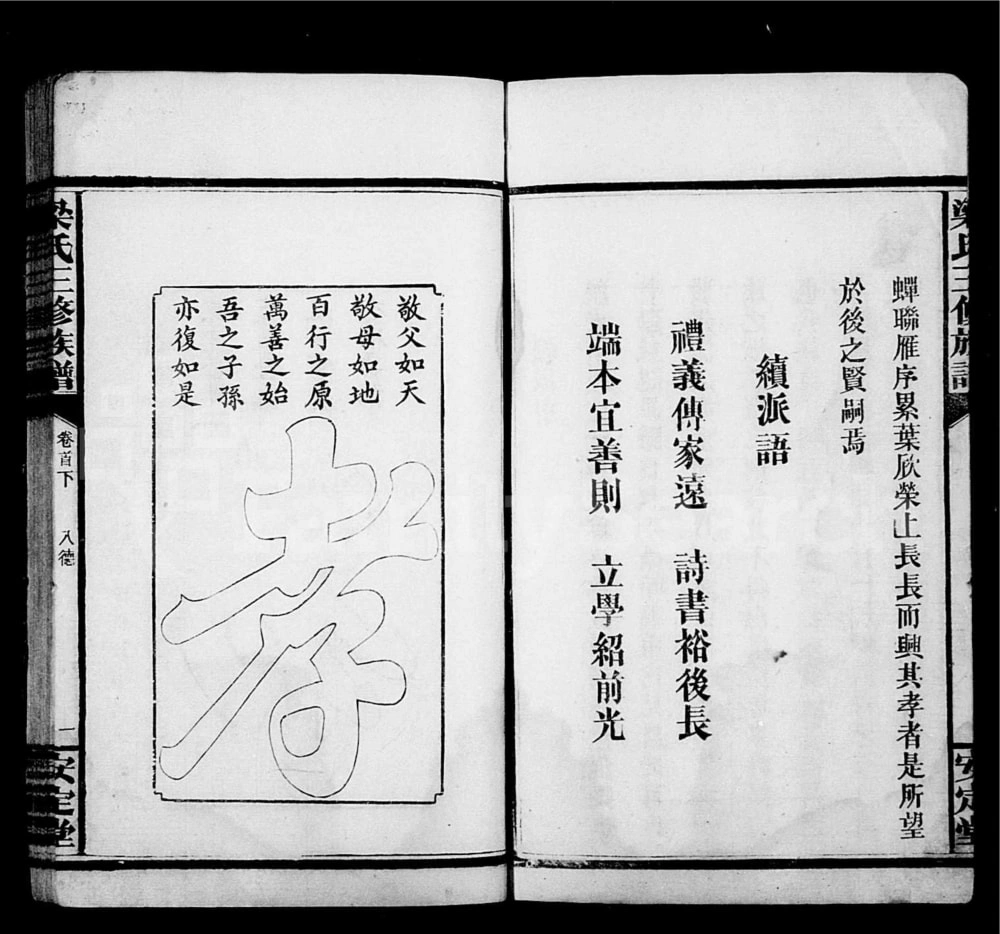 梁氏三修族譜
安定堂
蟬聯雁序累葉欣榮上長長而興其孝者是所望
於後之賢嗣焉
續派語
禮義傳家遠　詩書裕後長
端本宜善則　立學紹前光
敬父如天
敬母如地
百行之原
萬善之始
吾之子孫
亦復如是
孝
梁氏三修族譜
卷首下
八德
一
安定堂